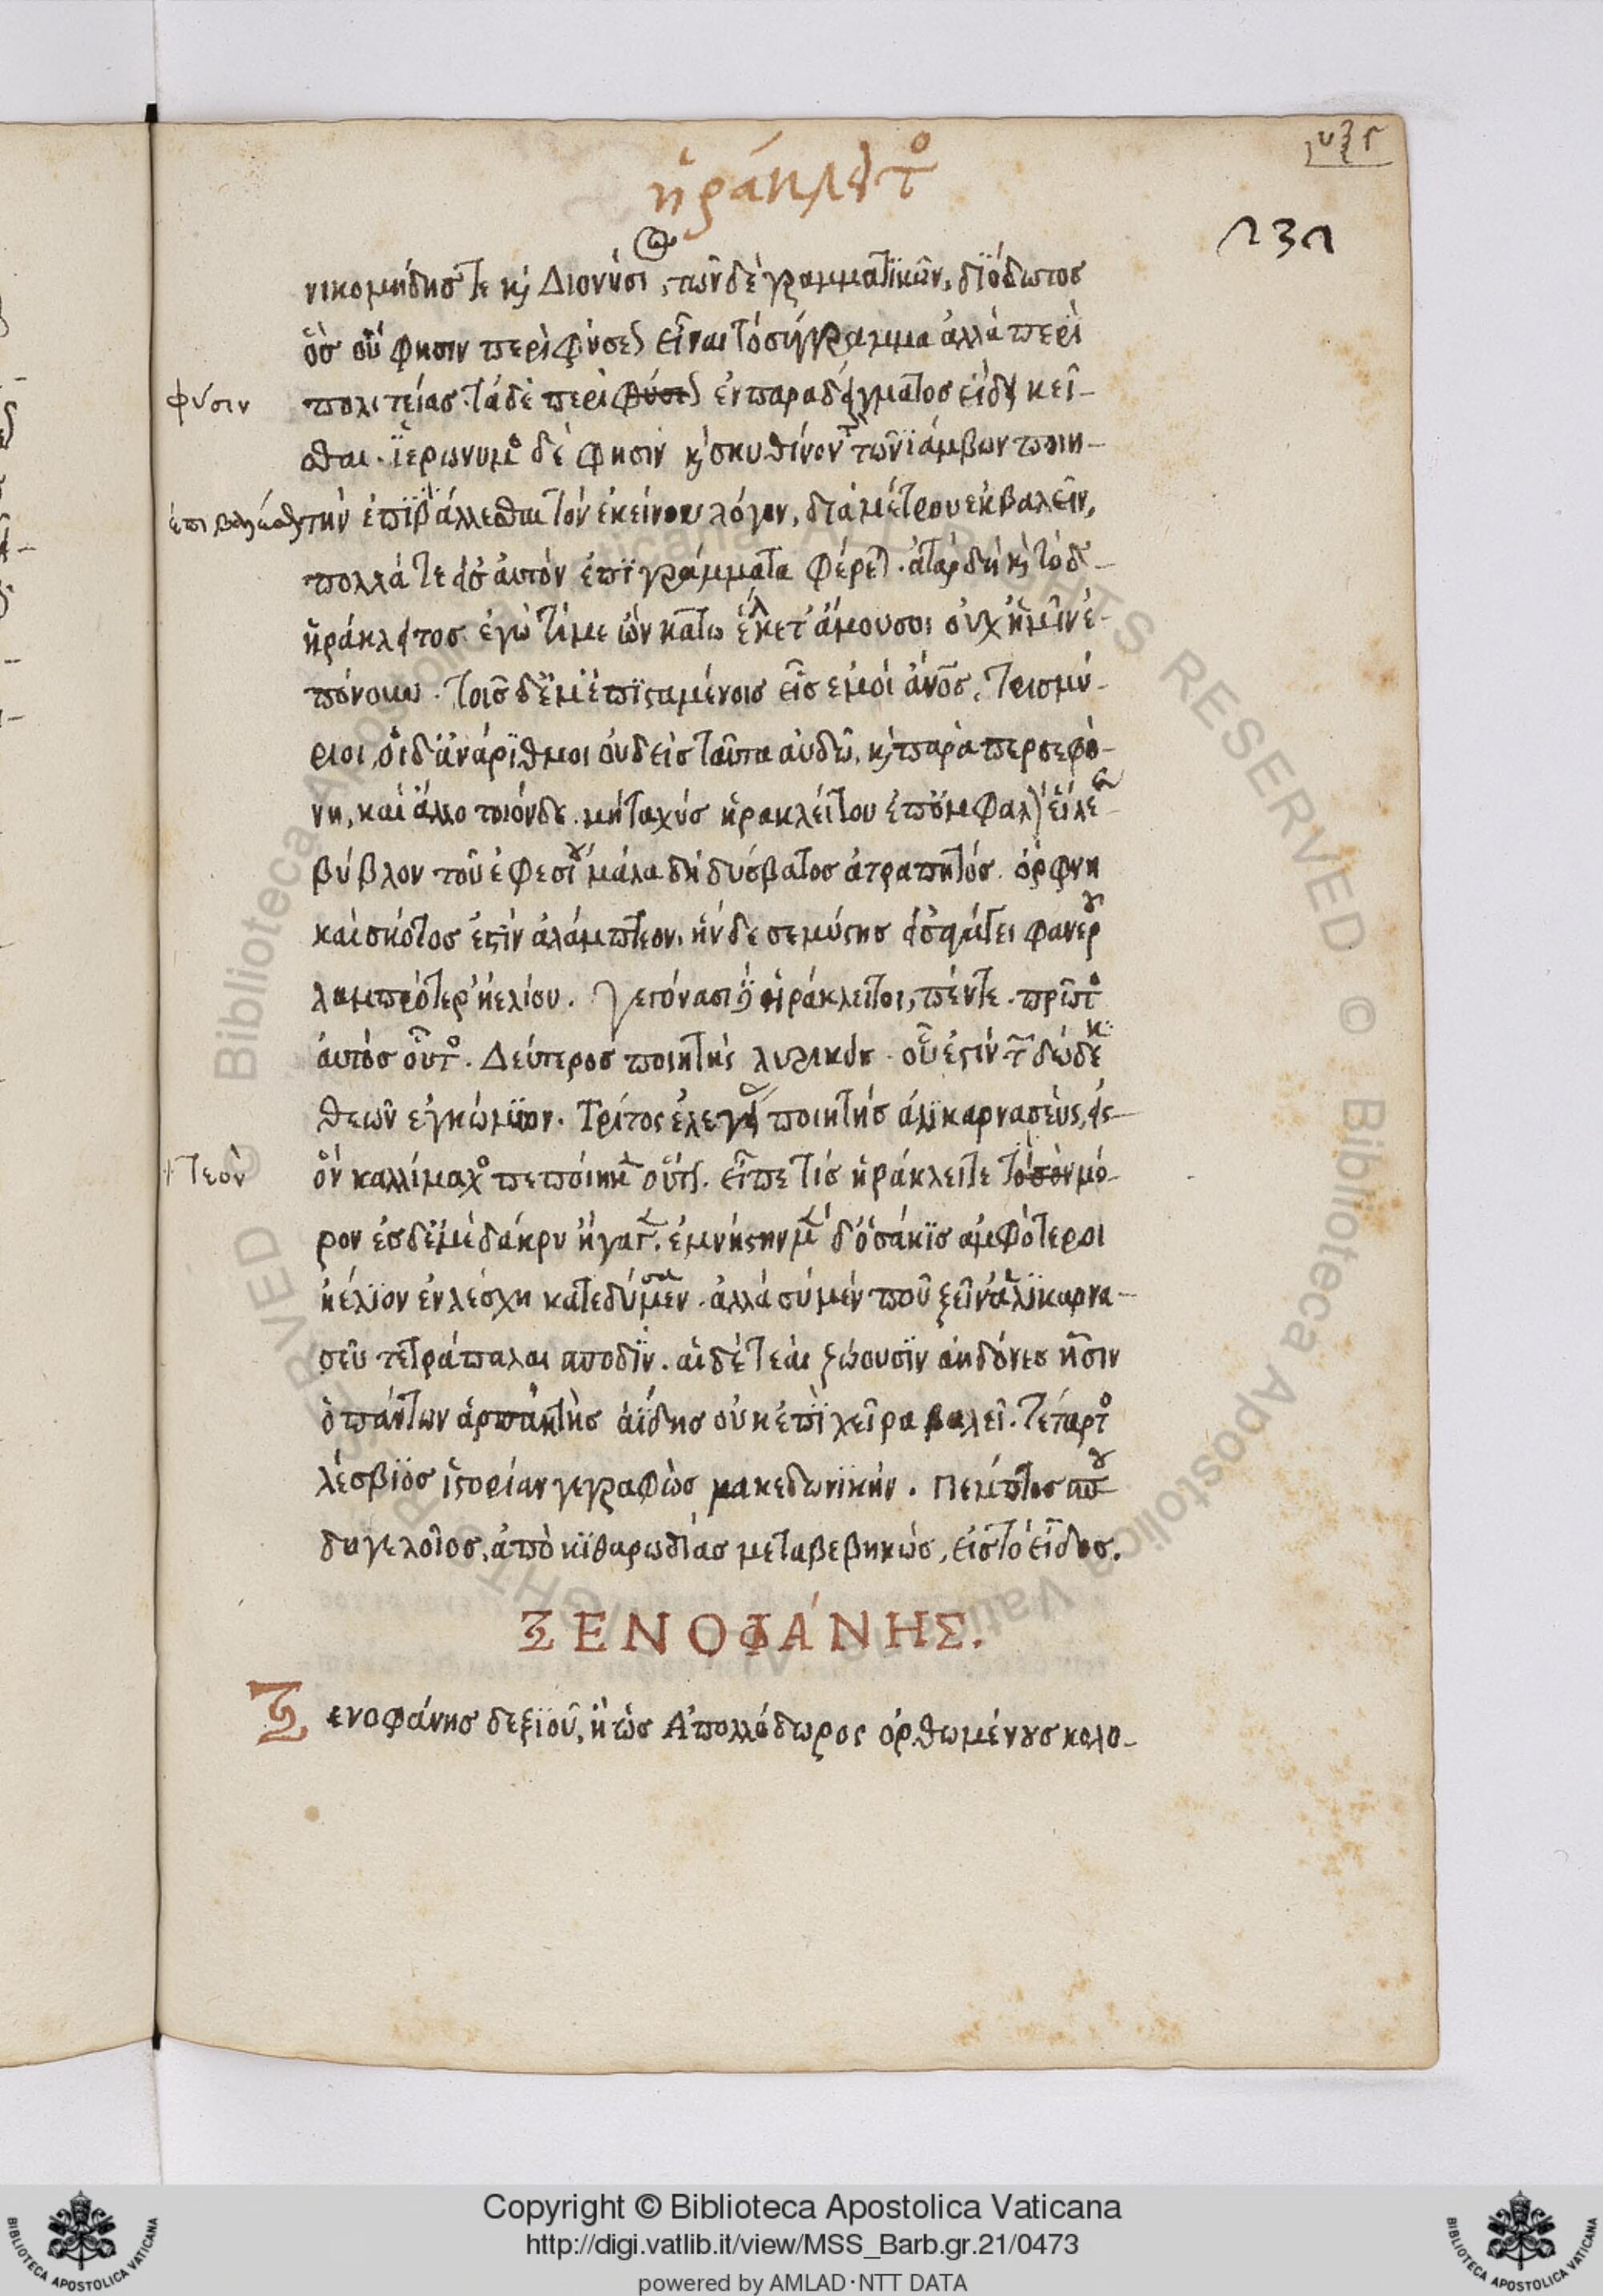 ἡράκλειτος
υξς
231
νικομήδης τε καὶ Διονύσιος, τῶν δὲ γραμματϊκῶν, δϊόδωτος
ὃς οὔ φησιν περὶ φύσεως εἶναι τὸ σύγγραμμα ἀλλὰ περὶ
φύσιν
πολιτείας. τὰ δὲ περὶ φύσεως ἐν παραδείγματος εἴδει κεῖ-
σθαι. ἱερώνυμος δέ φησιν καὶ σκυθίνον τὸν τῶν ϊάμβων ποιη-
ἐπιβαλέσθαι
τὴν ἐπϊβάλλεσθαι τὸν ἐκείνου λόγον, διὰ μέτρου ἐκβαλεῖν,
πολλά τε εἰς αὐτὸν ἐπϊγράμματα φέρεται. ἀτὰρ δὴ καὶ τόδε
ἡράκλειτος ἐγὼ τί με ὦν κάτω ἕλκετ' ἄμουσοι οὐχ ἡμῖν ἐ-
πόνουν. τοῖς δέ μ' ἐπϊσταμένοις εἷς ἐμοὶ ἄνος, τρισμύ-
ριοι, οἱ δ' ἀνάρϊθμοι οὐδείς ταῦτα αὐδῶ, καὶ παρὰ περσεφό-
νη, καὶ ἄλλο τοιόνδε. μὴ ταχὺς ἡρακλείτου ἐπ' ὀμφαλὸν εἴλεε
βύβλον τοῦ ἐφεσίου μάλα δὴ δύσβατος ἀτραπητός. ὀρφνη
καὶ σκότος ἐστὶν ἀλάμπτεον. ἢν δέ σε μύστης εἰσαγάγει φανεροῦ
λαμπρότερ' ἠελίου. Γεγόνασι δ' ἡράκλειτοι, πέντε. πρῶτος
αὐτὸς οὗτος. Δεύτερος ποιητὴς λυρικός. οὗ ἐστιν τῶν δώδεκα
θεῶν ἐγκώμϊον. Τρίτος ἐλεγείας ποιητὴς ἁλϊκαρνασεύς, εἰς
τεὸν
ὃν καλλίμαχος πεποίηκεν οὕτως. εἶπε τίς ἡράκλειτε τόσον μό-
ρον ἐς δέ με δάκρυ ἤγαγεν. ἐμνήσθην δ' ὁσάκϊς ἀμφότεροι
ἠέλϊον ἐν λέσχη κατεδύσαμεν. ἀλλὰ σὺ μέν που ξεῖν' ἁλϊκαρνα-
σεῦ τετράπαλαι σποδϊή. αἱ δὲ τεαὶ ζώουσϊν ἀηδόνες ἧσιν
ὁ πάντων ἁρπακτὴς ἀΐδης οὐκ ἐπϊ χεῖρα βαλεῖ. Τέταρτος
λέσβϊος ἱστορίαν γεγραφὼς μακεδωνϊκήν. Πέμπτος σπου
δογελοῖος, ἀπὸ κϊθαρωδίας μεταβεβηκώς, εἰς τὸ εἶδος.
ΞΕΝΟΦΆΝΗΣ.
Ξενοφάνης δεξϊοῦ, ἢ ὡς Ἀπολλόδωρος ὀρθωμένους κολο-
Copyright © Biblioteca Apostolica Vaticana
http://digi.vatlib.it/view/MSS_Barb.gr.21/0473
powered by AMLAD·NTT DATA